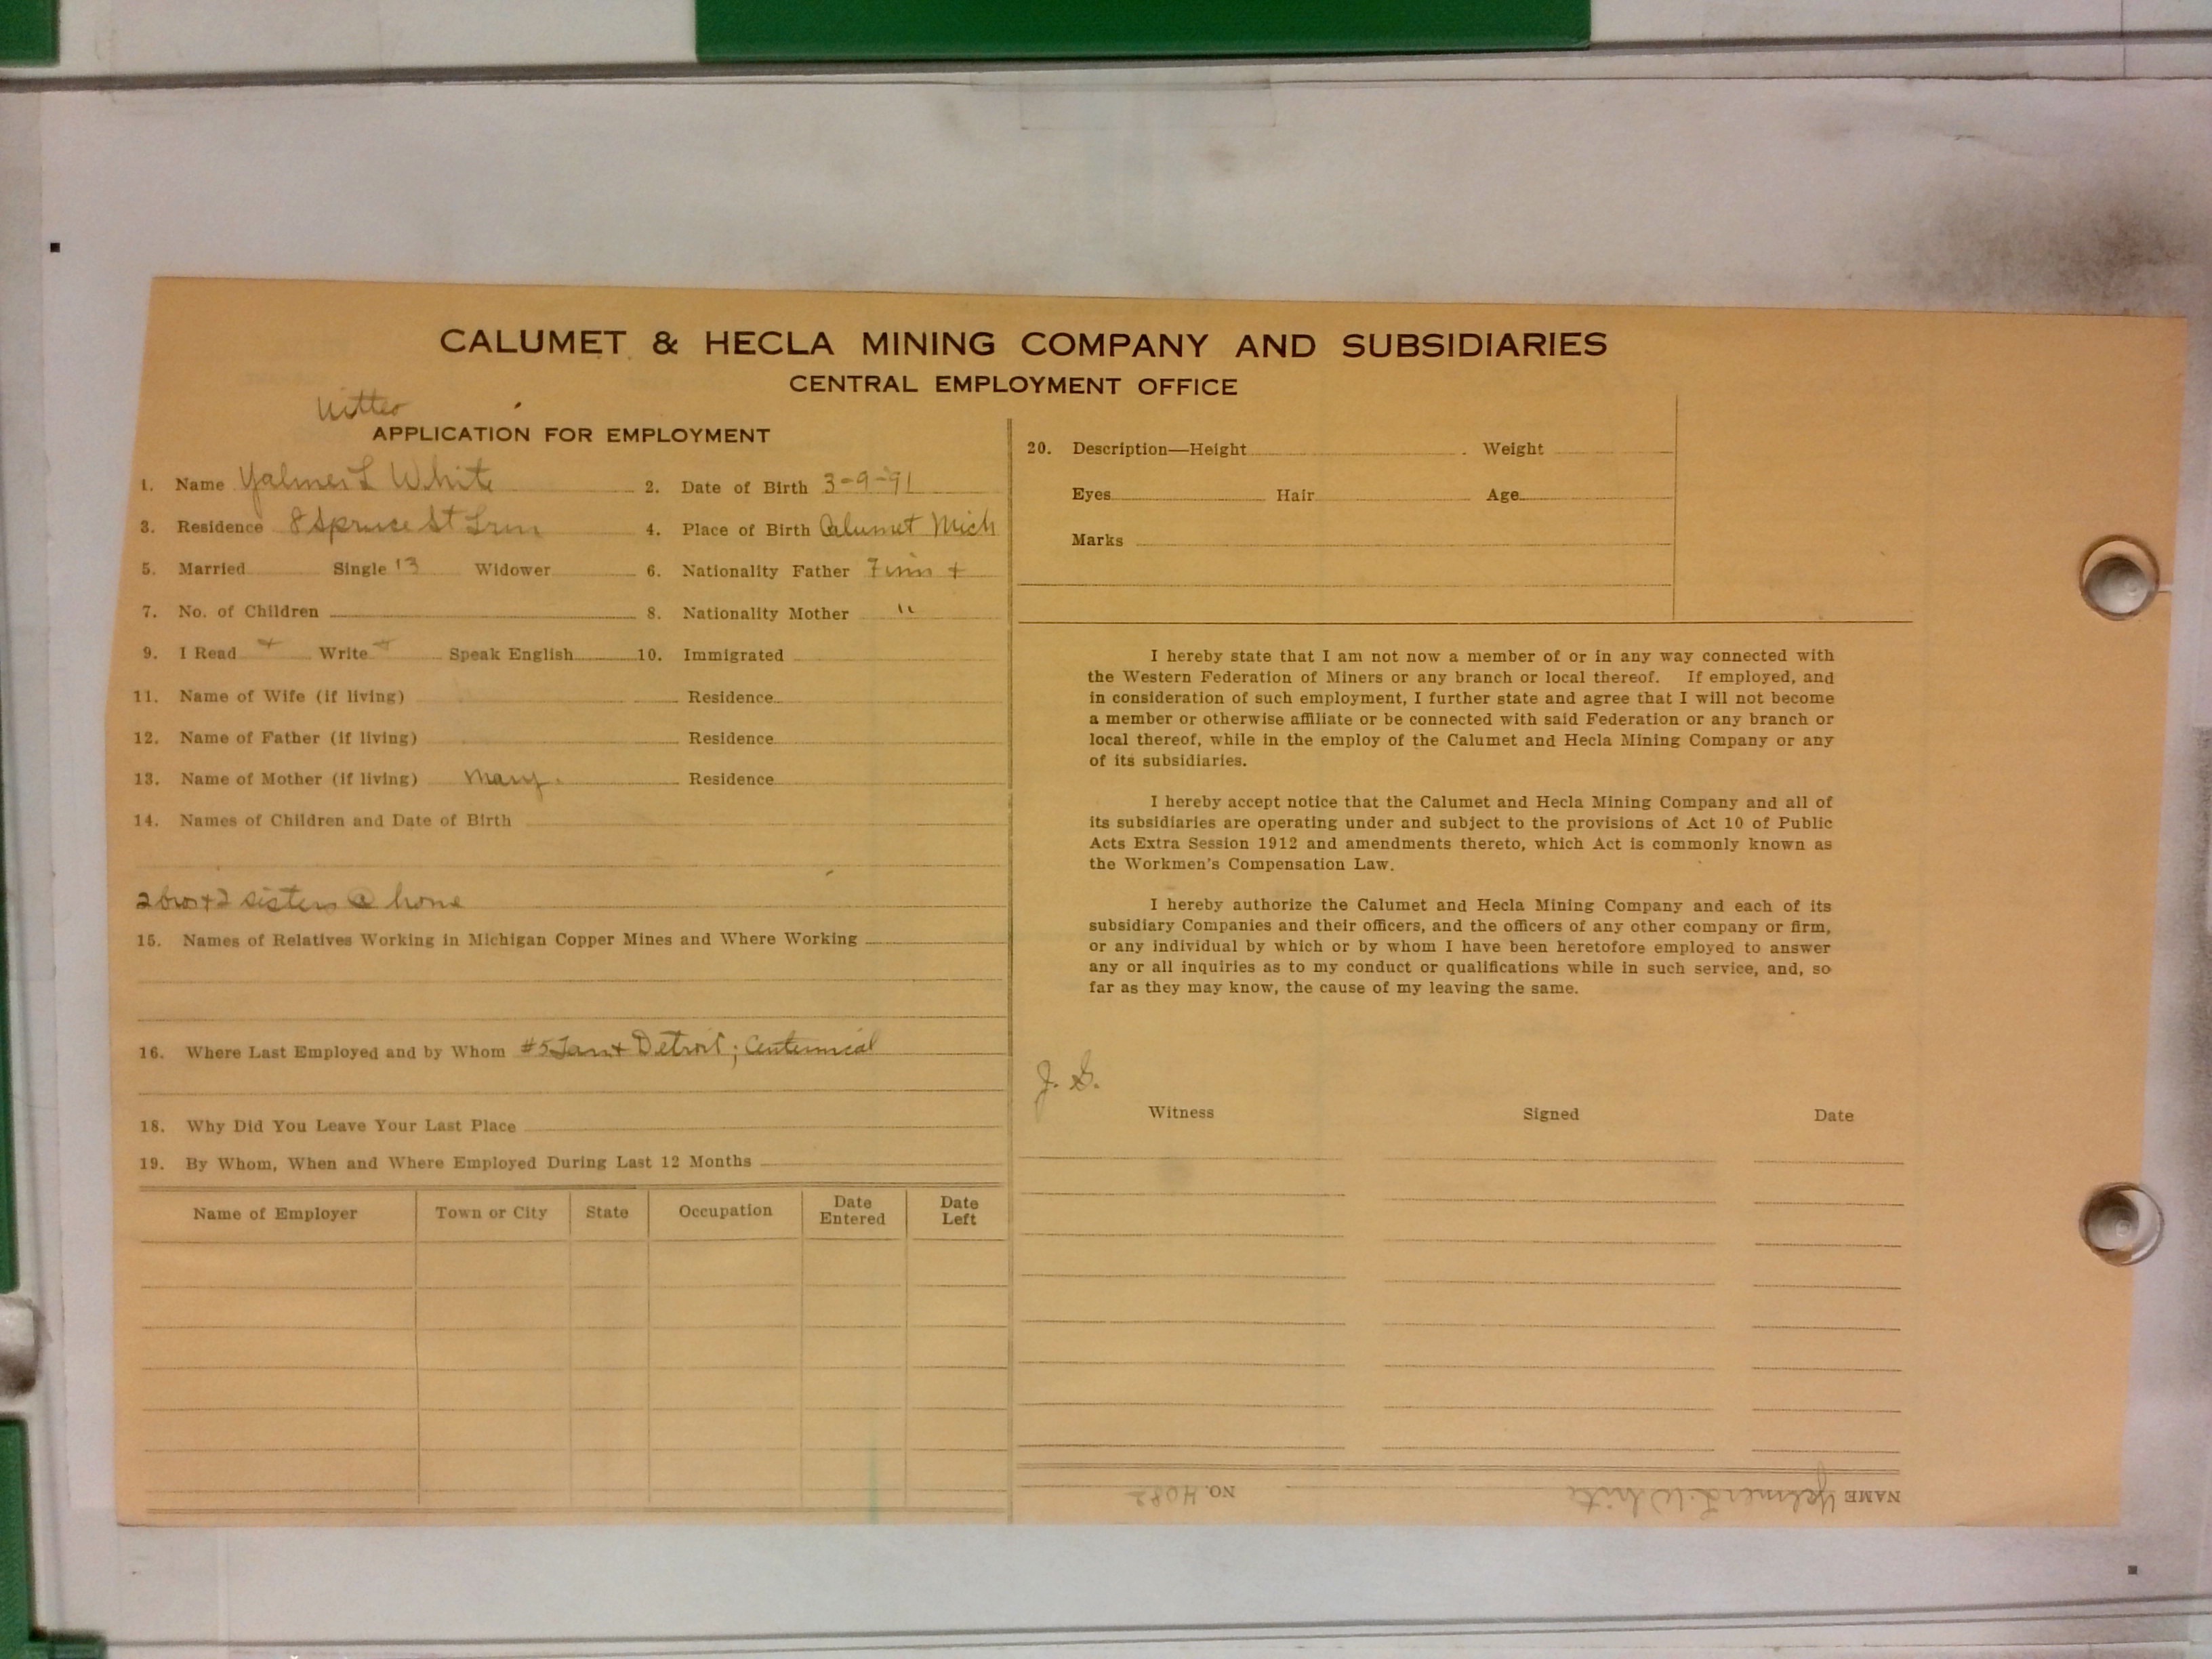 CALUMET & HECLA MINING COMPANY AND SUBSIDIARIES
CENTRAL EMPLOYMENT OFFICE
APPLICATION FOR EMPLOYMENT
1. Name Yalmer L White 2. Date of Birth 3-9-91
3. Residence 8 Spruce St 4. Place of Birth Calumet Mich
5. Married Single 13 Widower 6. Nationality Father Finn +
7. No. of Children 8. Nationality Mother "
9. I Read + Write + Speak English 10. Immigrated
11. Name of Wife (if living) Residence
12. Name of Father (if living) Residence
13. Name of Mother (if living) Mary. Residence
14. Names of Children and Date of Birth
2 bros + 2 sisters @ home
15. Names of Relatives Working in Michigan Copper Mines and Where Working
16. Where Last Employed and by Whom #5 Detroit; Centennial
18. Why Did You Leave Your Last Place
19. By Whom, When and Where Employed During Last 12 Months
Name of Employer Town or City State Occupation Date Entered Date Left
20. Description—Height Weight
Eyes Hair Age
Marks
I hereby state that I am not now a member of or in any way connected with
the Western Federation of Miners or any branch or local thereof. If employed, and
in consideration of such employment, I further state and agree that I will not become
a member or otherwise affiliate or be connected with said Federation or any branch or
local thereof, while in the employ of the Calumet and Hecla Mining Company or any
of its subsidiaries.
I hereby accept notice that the Calumet and Hecla Mining Company and all of
its subsidiaries are operating under and subject to the provisions of Act 10 of Public
Acts Extra Session 1912 and amendments thereto, which Act is commonly known as
the Workmen's Compensation Law.
I hereby authorize the Calumet and Hecla Mining Company and each of its
subsidiary Companies and their officers, and the officers of any other company or firm,
or any individual by which or by whom I have been heretofore employed to answer
any or all inquiries as to my conduct or qualifications while in such service, and, so
far as they may know, the cause of my leaving the same.
J. S.
Witness Signed Date
NAME Yalmer L. White NO. 4082